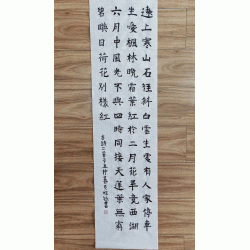 遠上寒山石徑斜白雲生處有人家停車
坐愛楓林晚霜葉紅於二月花畢竟西湖
六月中風光不與四時同接天蓮葉無窮
碧映日荷花別樣紅
古詩二首辛丑仲春